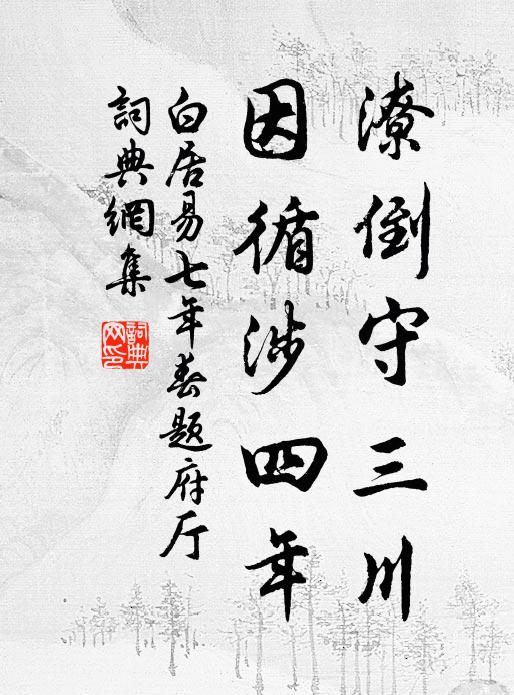 潦倒守三川
因循涉四年
白居易七年春题府厅
詞典網集
詞典網印